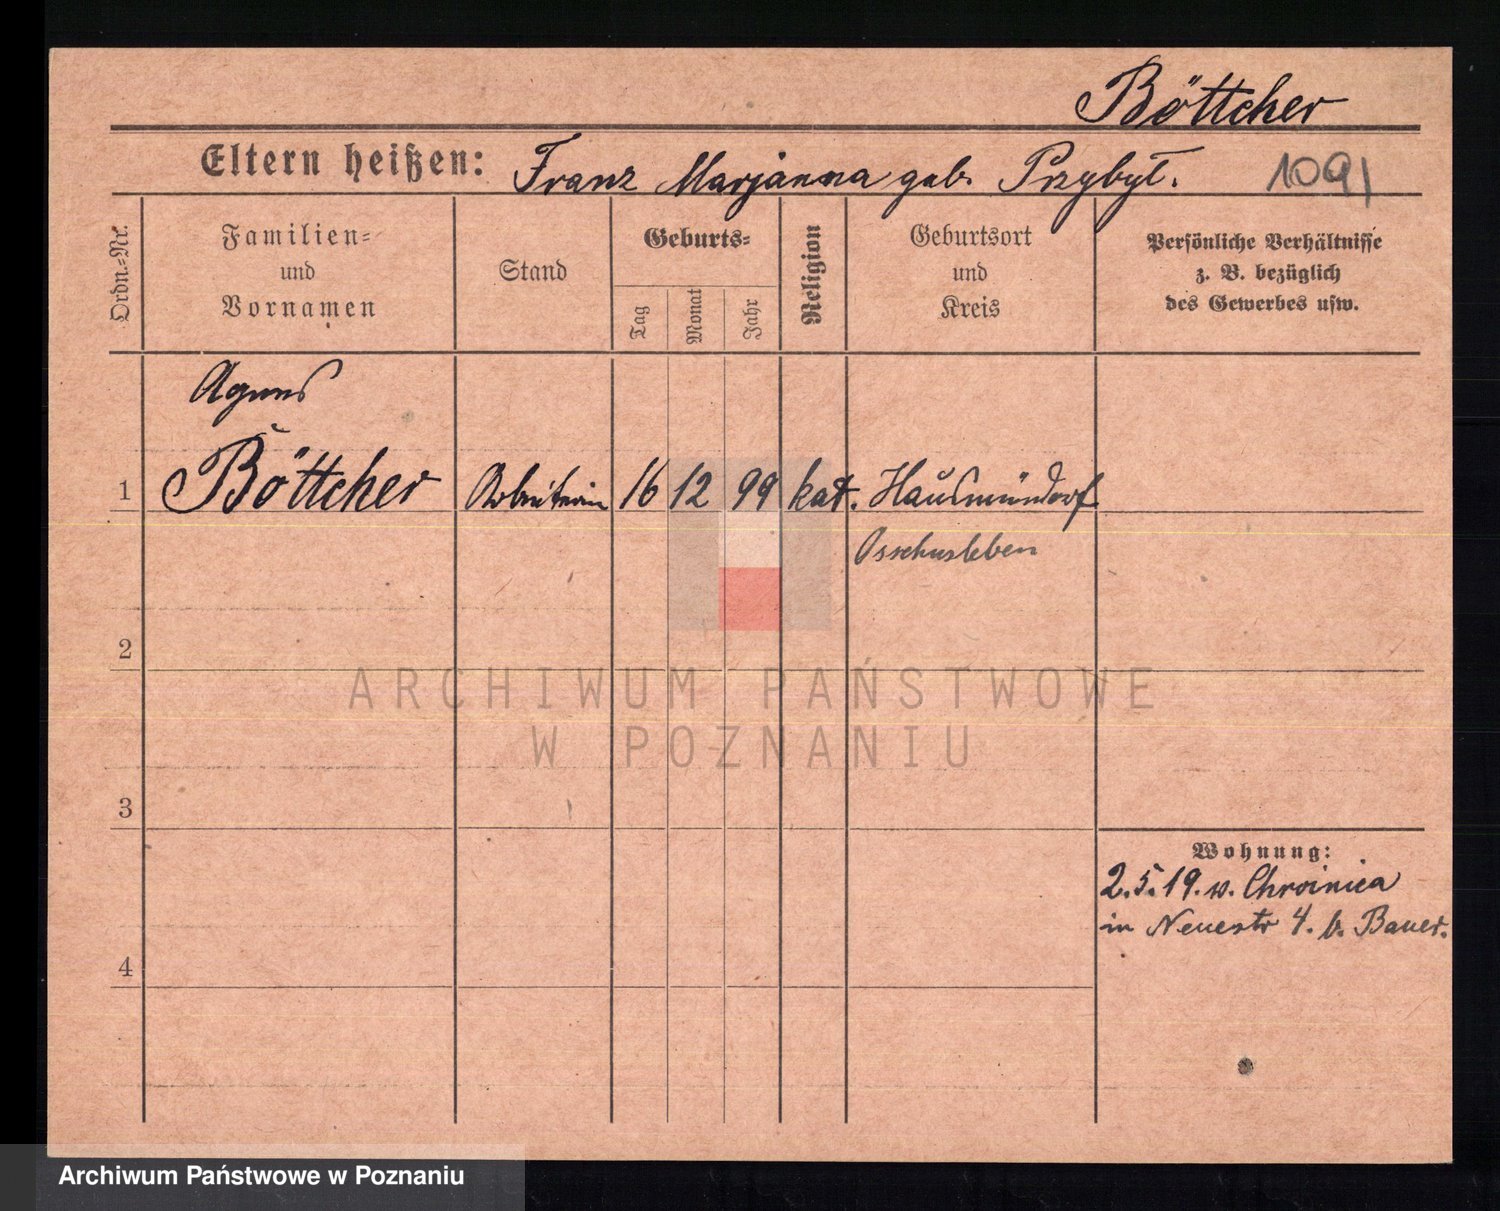 Böttcher
Eltern heißen: Franz Marjanna geb. Przybył. 1091
Ordn.=Nr.
Familien=
und
Vornamen
Stand
Geburts=
Tag
Monat
Jahr
Religion
Geburtsort
und
Kreis
Persönliche Verhältnisse
z. B. bezüglich
des Gewerbes usw.
Agnes
1 Böttcher Arbeiterin 16 12 99 kat. Hausmündorf
Osschersleben
2
ARCHIWUM PAŃSTWOWE
W POZNANIU
3
Wohnung:
2.5.19. v. Chroinica
in Neuestr 4. b. Bauer.
4
Archiwum Państwowe w Poznaniu